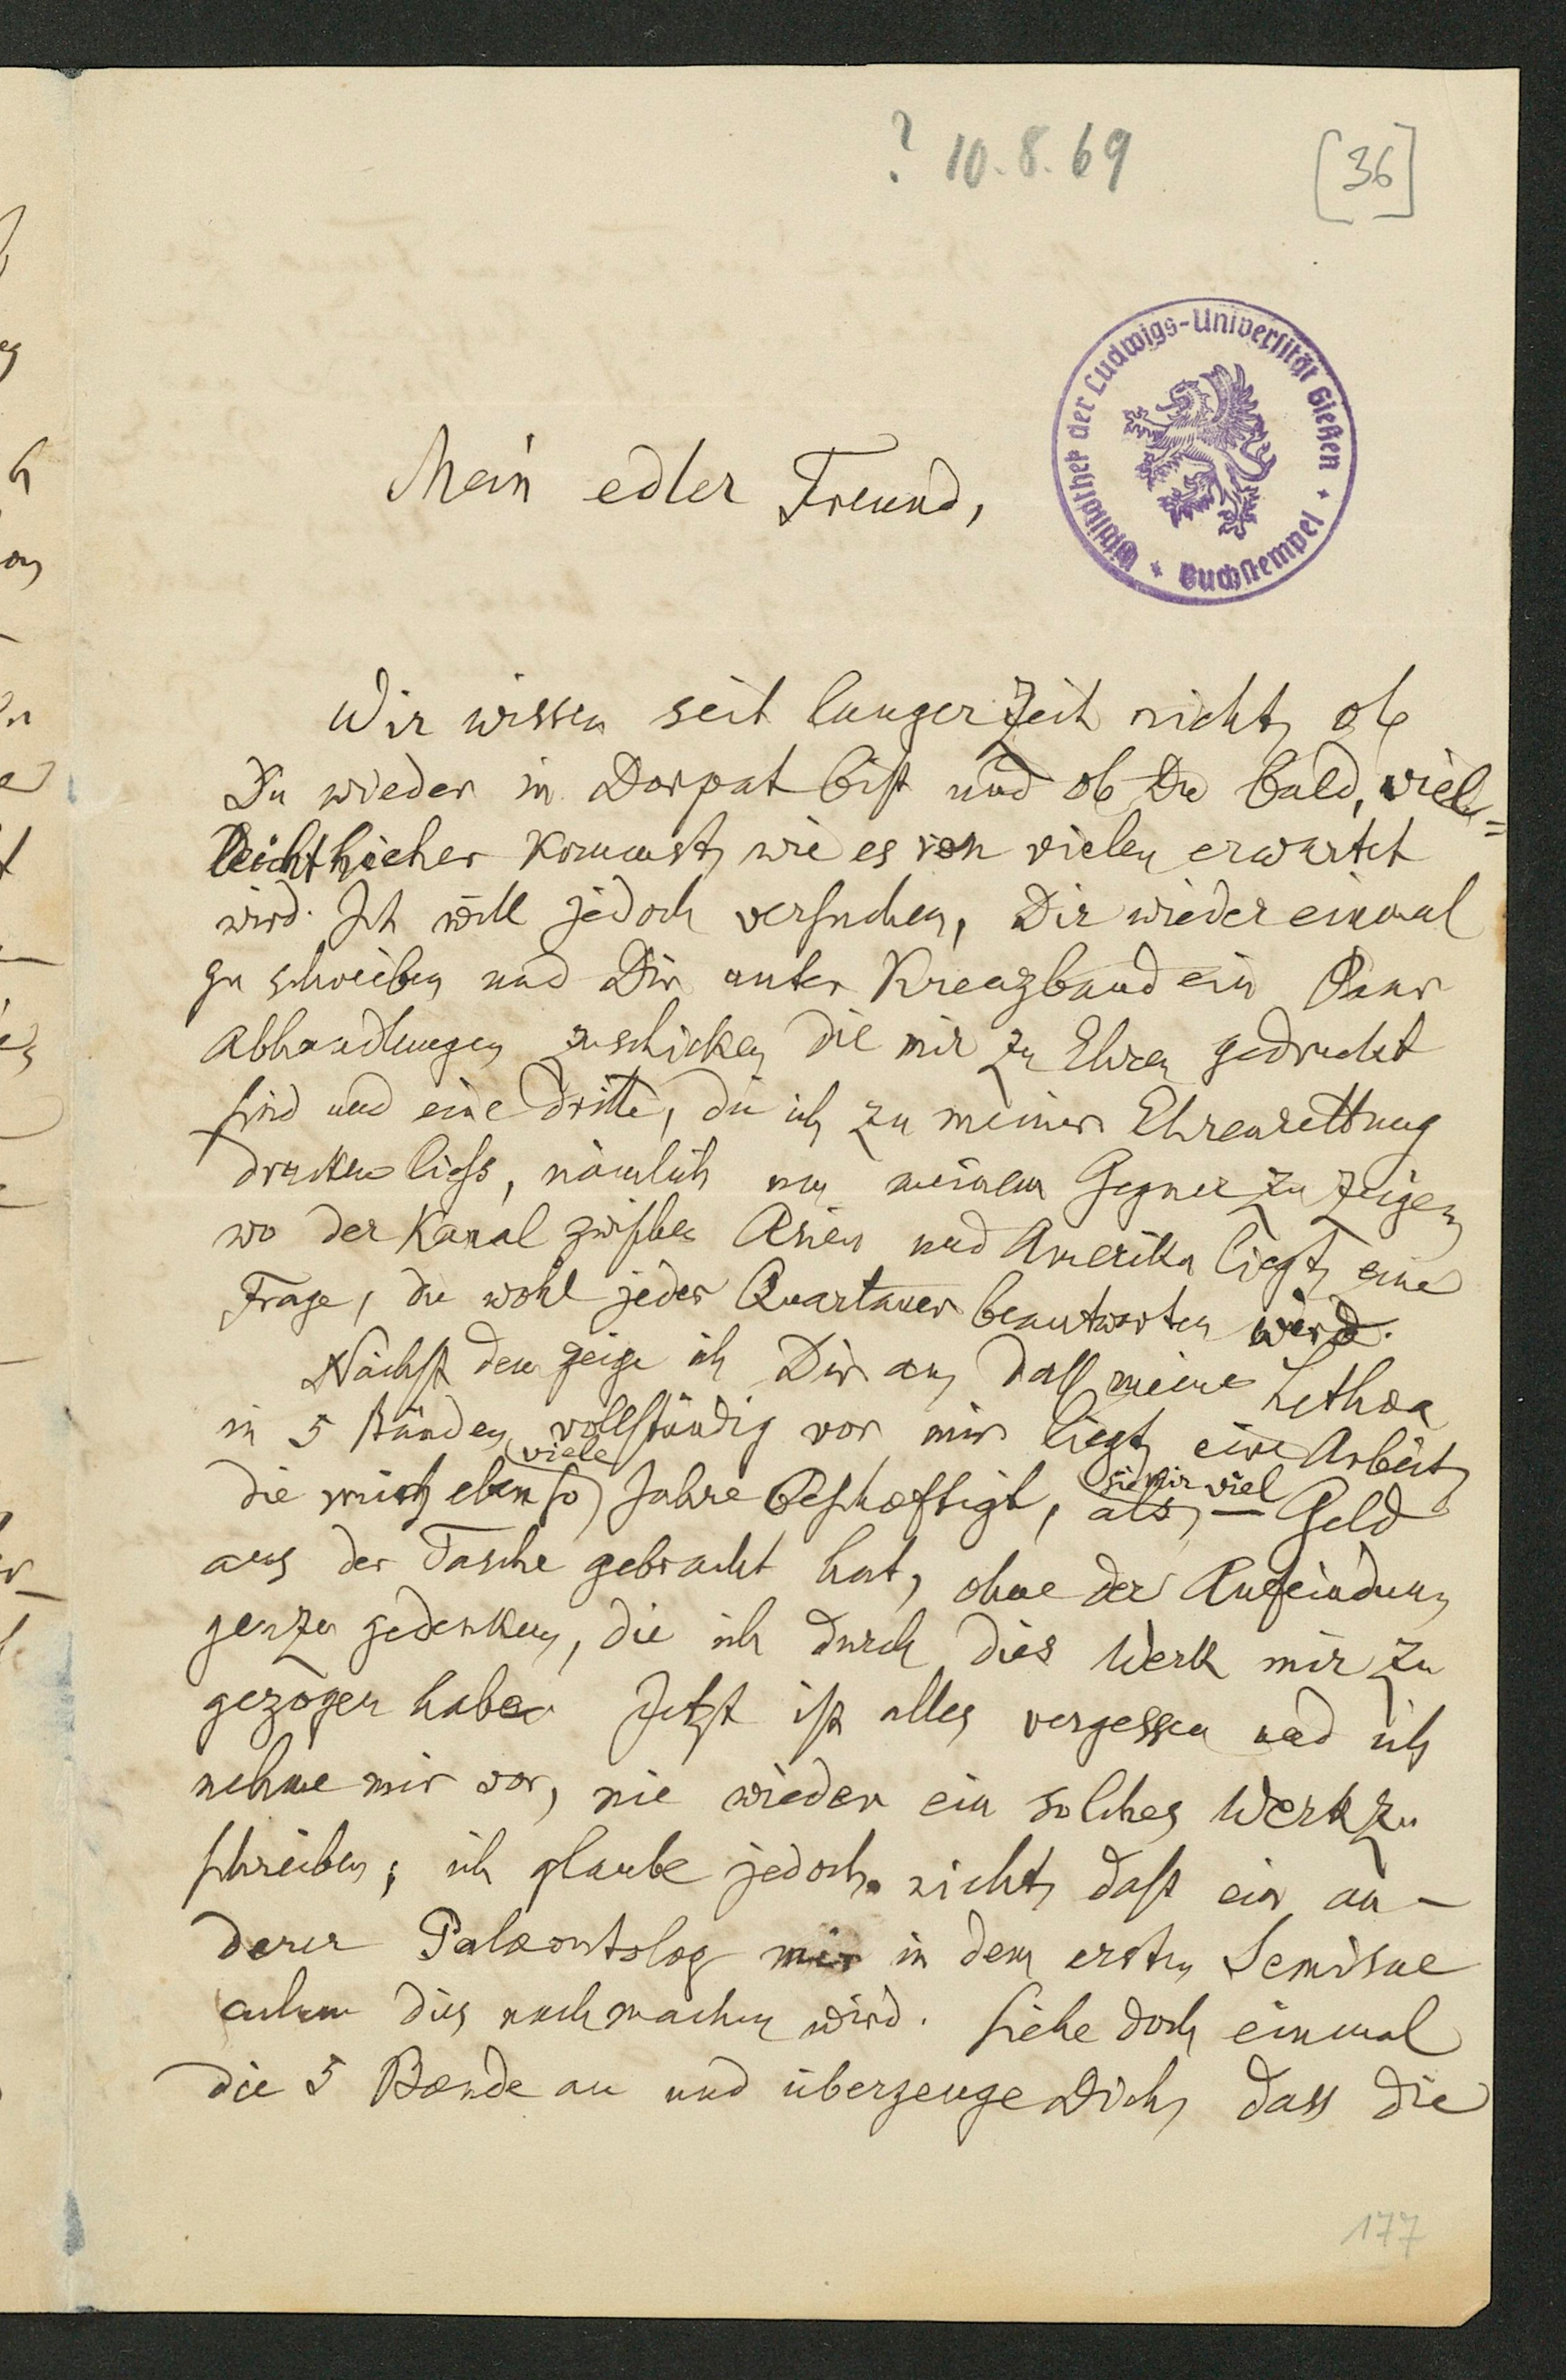 ? 10.8.69 [36]
Bibliothek der Ludwigs-Universität Gießen
* Buchstempel *
Mein edler Freund,
Wir wissen seit langer Zeit nicht, ob
Du wieder in Dorpat bist und ob Du bald, viel=
leicht hieher kommst, wie es von vielen erwartet
wird. Ich will jedoch versuchen, Dir wieder einmal
zu schreiben und Dir unter Kreuzband ein Paar
Abhandlungen zuschicken, die mir zu Ehren gedruckt
sind und eine dritte, die ich zu meiner Ehrenrettung
drucken liess, nämlich um meinem Gegner zu zeigen,
wo der Kanal zwischen Asien und Amerika liegt, eine
Frage, die wohl jeder Quartaner beantworten wird.
Nächst dem zeige ich Dir an, dass meine Lethæa
in 5 Bänden vollständig vor mir liegt, eine Arbeit,
die mich eben so viele Jahre beschæftigt, als sie mir viel Geld
aus der Tasche gebracht hat, ohne der Anfeindun
gen zu gedenken, die ich durch dies Werk mir zu
gezogen habe. Jetzt ist alles vergessen und ich
nehme mir vor, nie wieder ein solches Werk zu
schreiben; ich glaube jedoch nicht, dass ein an-
derer Palæontolog mir in dem ersten Semisae
culum dies nachmachen wird. Siehe doch einmal
die 5 Bænde an und überzeuge Dich, dass die
177